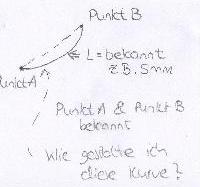 Punkt B
L = bekannt
z.B. 5mm
Punkt A
Punkt A & Punkt B
bekannt
Wie gestalte ich
diese Kurve?